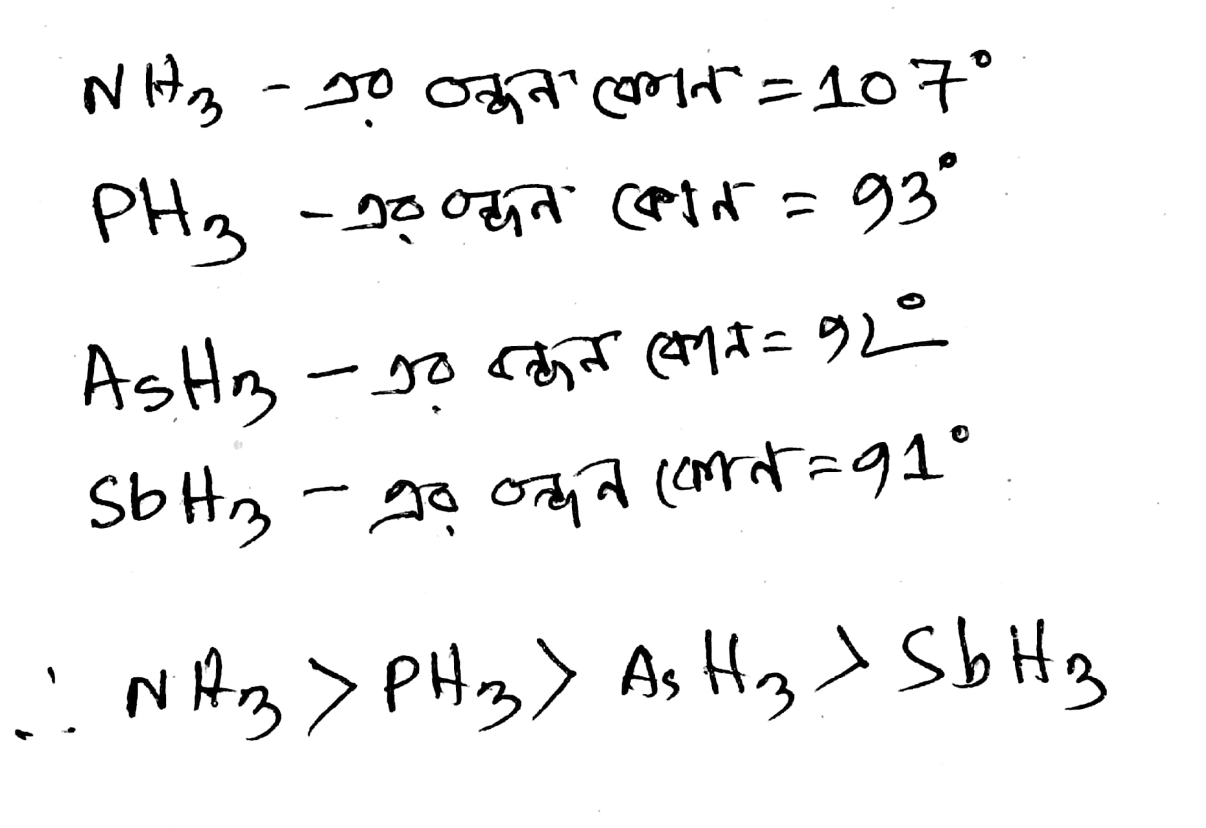 NH3 - এর বন্ধন কোন = 107°
PH3 - এর বন্ধন কোন = 93°
AsH3 - এর বন্ধন কোন = 92°
SbH3 - এর বন্ধন কোন = 91°
∴ NH3 > PH3 > AsH3 > SbH3